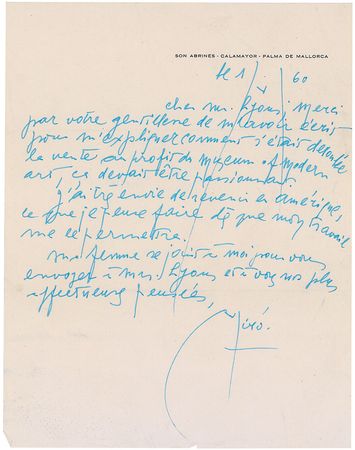 SON ABRINES - CALAMAYOR - PALMA DE MALLORCA
le 1 / / 60
cher mr. Lyons, Merci
par votre gentillesse de m'avoir écrit
pour m'expliquer comment s'était déroulée
la vente au profit du Museum of Modern
art, ce devait être passionnant.
J'ai très envie de revenir en Amérique,
ce que je peux faire dès que mon travail
me le permettra.
Ma femme se joint à moi pour vous
envoyer à Mrs. Lyons et à vous nos plus
affectueuses pensées,
Miró.